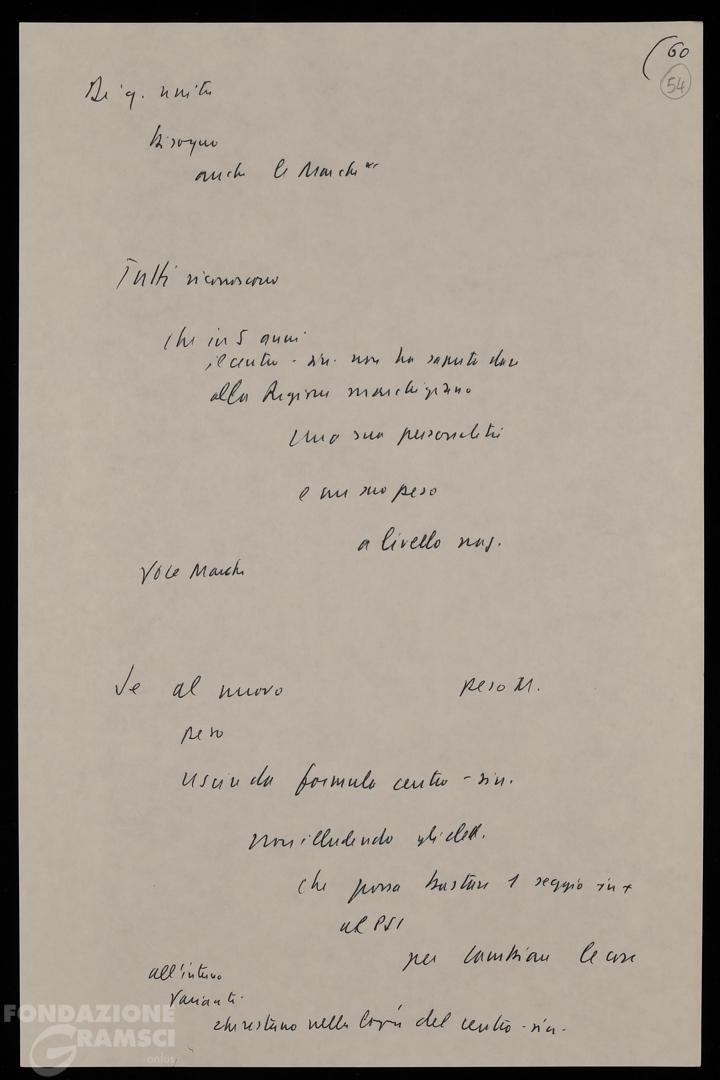 (60
54
Di q. unità
bisogno
anche le Marche
Tutti riconoscono
che in 5 anni
il centro-sin. non ha saputo dare
alla Regione marchigiana
una sua personalità
e un suo peso
a livello naz.
Voce Marche
Se al nuovo peso M.
peso
uscire da formula centro-sin.
non illudendo gli elett.
che possa bastare 1 seggio in +
al PSI
per cambiare le cose
all'interno
varianti
che restano nella logica del centro-sin.
FONDAZIONE
GRAMSCI
onlus